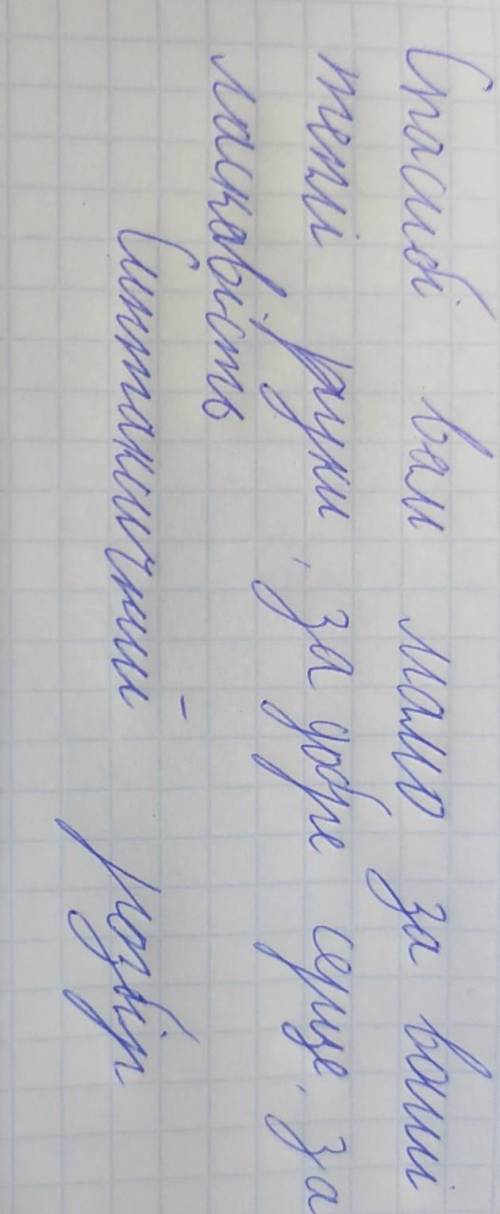 Спасибі вам мамо за ваші
теплі руки, за добре серце, за
ласкавість
Синтаксичний розбір